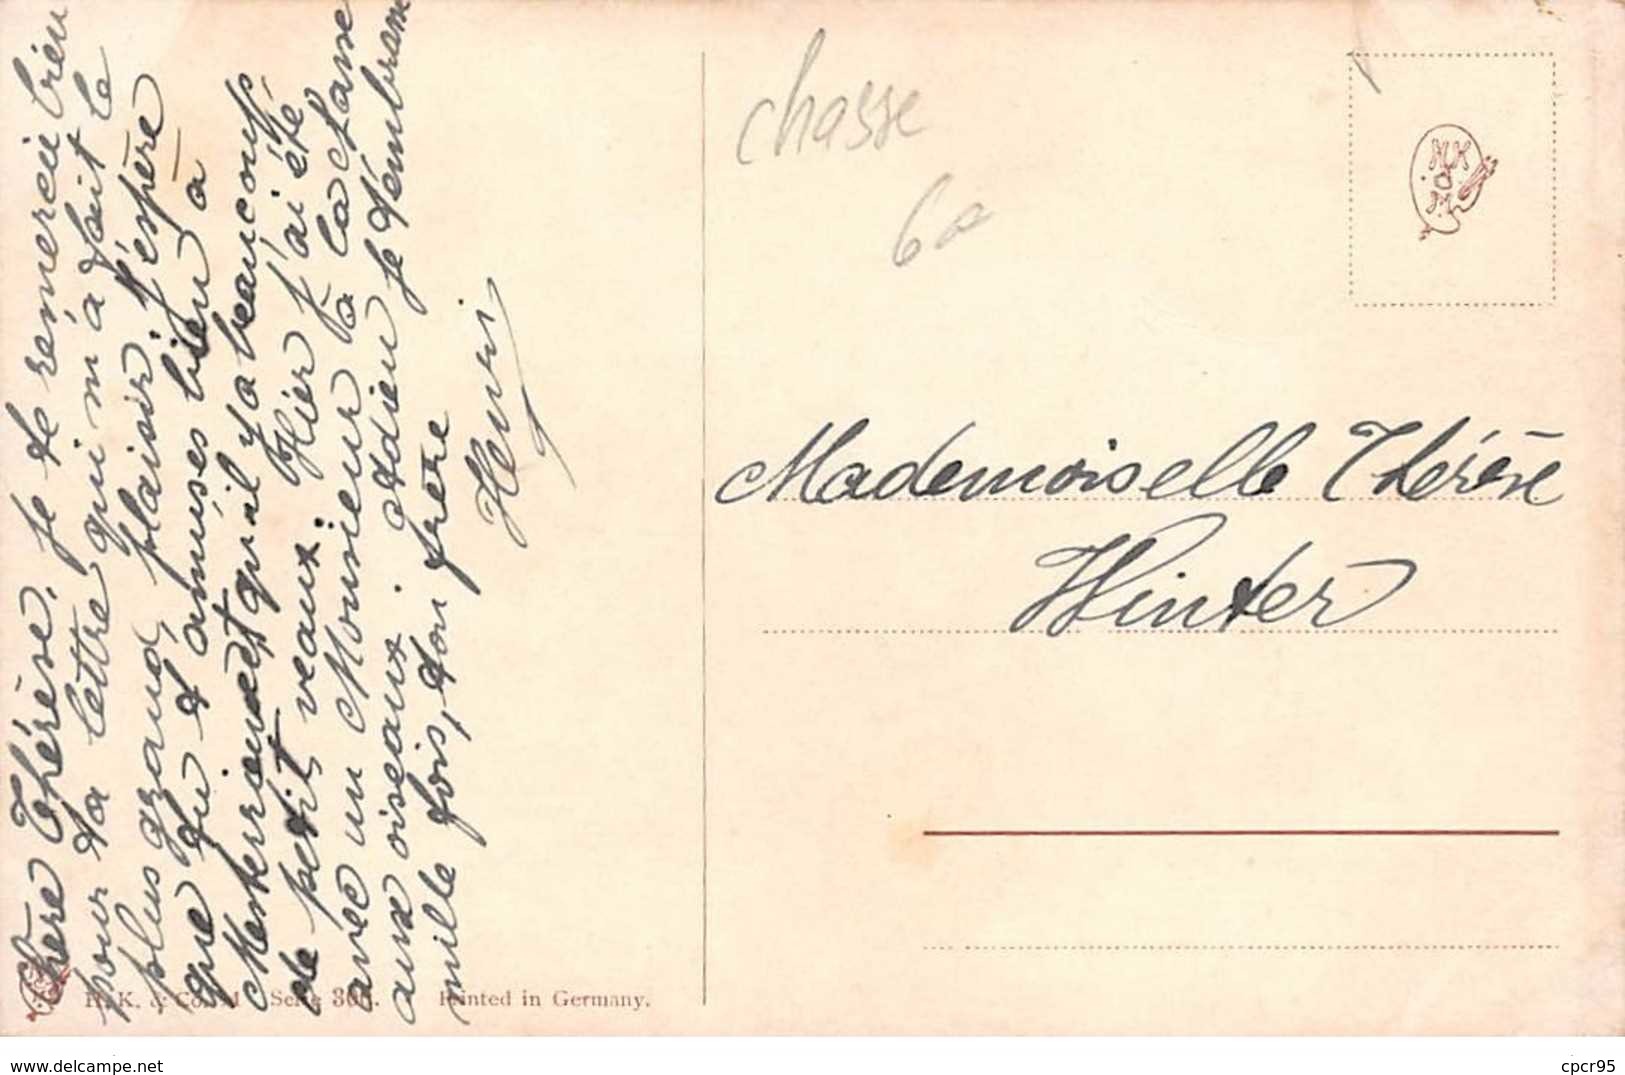 Chère Thérèse, je te rémercie bien
pour ta lettre qui m'a fait le
plus grand plaisir. J'éspère
que tu t'amuses bien à
et qu'il y a beaucoup
de petit veaux. Hier j'ai été
avec un Monsieur à la chasse
aux oiseaux. Adieu je t'émbrasse
mille fois, ton frère
Henri
H. K. & Co. M Serie 30. Printed in Germany.
chasse
60
H.K.
& Co.
M.
Mademoiselle Thérèse
Winter
www.delcampe.net
cpcr95